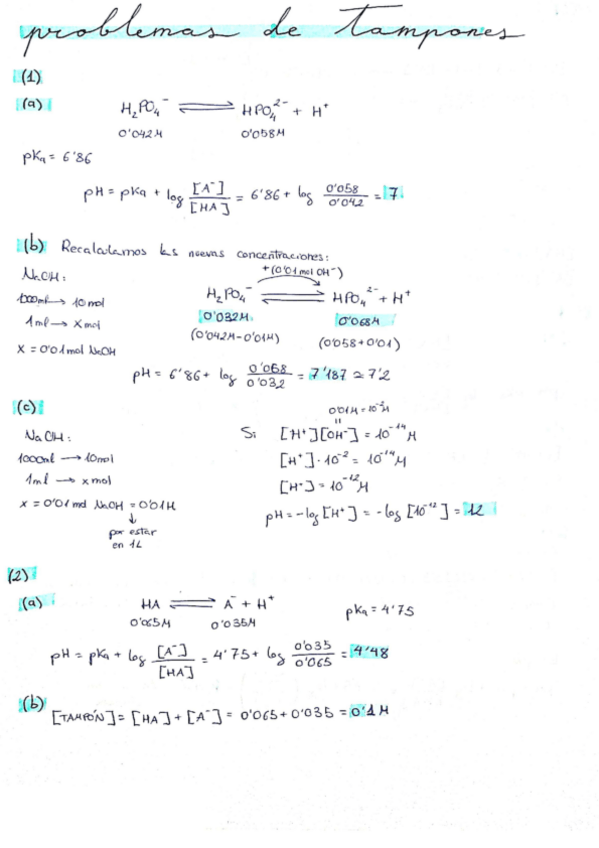 problemas de tampones
(1)
(a) H₂PO₄⁻ ⇌ HPO₄²⁻ + H⁺
0'042M 0'058M
pKa = 6'86
pH = pKa + log [A⁻]/[HA] = 6'86 + log 0'058/0'042 = 7
(b) Recalculamos las nuevas concentraciones:
+(0'01 mol OH⁻)
NaOH:
H₂PO₄⁻ ⇌ HPO₄²⁻ + H⁺
1000ml → 10mol
0'032M 0'068M
1ml → x mol
(0'042M-0'01M) (0'058+0'01)
x = 0'01 mol NaOH
pH = 6'86 + log 0'068/0'032 = 7'187 ≃ 7'2
(c)
0'01M = 10⁻²M
NaOH: Si [H⁺][OH⁻] = 10⁻¹⁴M
1000ml → 10mol [H⁺]·10⁻² = 10⁻¹⁴M
1ml → x mol [H⁺] = 10⁻¹²M
x = 0'01 mol NaOH = 0'01M
pH = -log [H⁺] = -log [10⁻¹²] = 12
↓
por estar
en 1L
(2)
(a) HA ⇌ A⁻ + H⁺ pKa = 4'75
0'065M 0'035M
pH = pKa + log [A⁻]/[HA] = 4'75 + log 0'035/0'065 = 4'48
(b) [TAMPÓN] = [HA] + [A⁻] = 0'065 + 0'035 = 0'1M